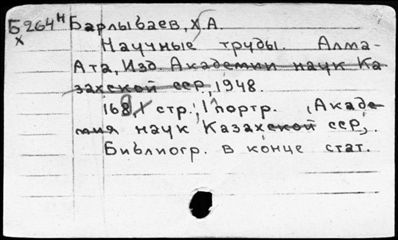 Б264н Барлыбаев, Х А.
х
Научные труды. Алма-
Ата, Изд Академии наук Ка
захской сср, 1948.
168, х стр.; 1 портр. , Акаде
мия наук Казахской сср,.
Библиогр. в конце стат.